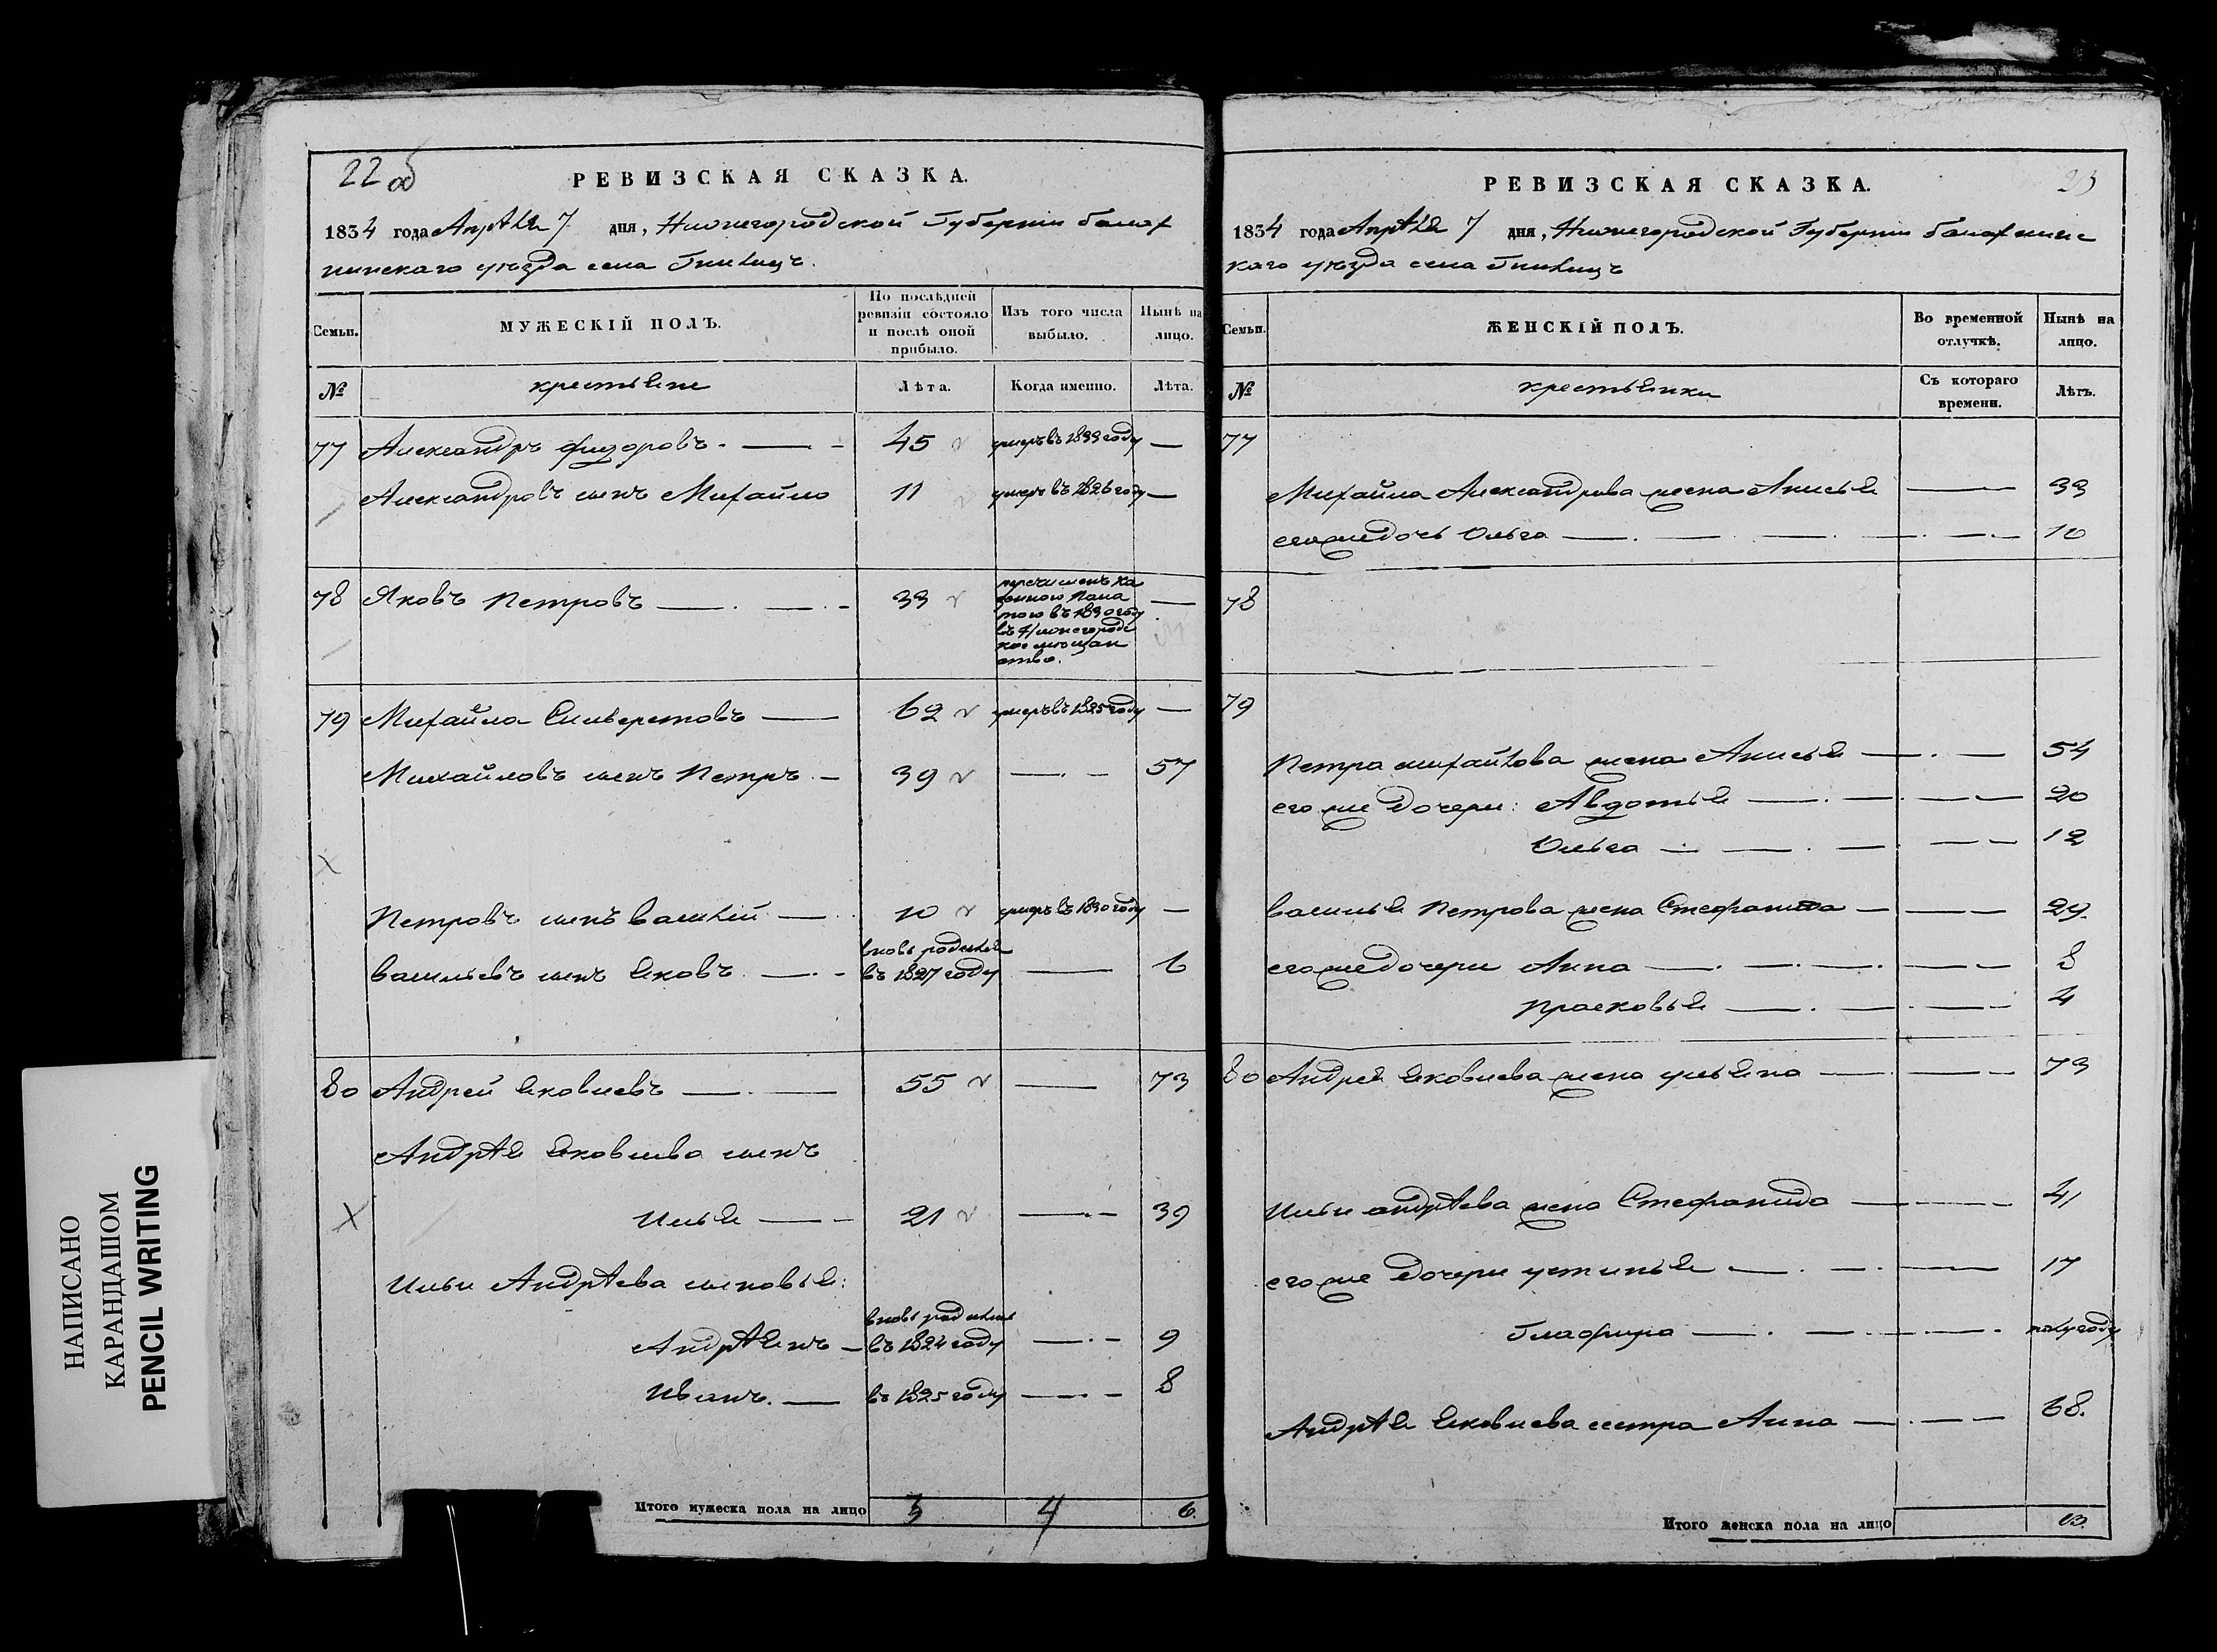 22 об
РЕВИЗСКАЯ СКАЗКА.
1834 года Апрѣля 7 дня, Нижегородской Губерніи балах
нинскаго уѣзда села Гнилицъ.
Семьи.
МУЖЕСКІЙ ПОЛЪ.
По послѣдней
ревизіи состояло
и послѣ оной
прибыло.
Изъ того числа
выбыло.
Нынѣ на
лицо.
№
крестьяне
Лѣта.
Когда именно.
Лѣта.
77 Александръ фидоровъ 45 умеръ въ 1833 году
Александровъ сынъ Михайло 11 умеръ въ 1826 году
78 Яковъ Петровъ 33
перечисленъ ка
зенною Пала
тою въ 1830 году
въ Нижегородс
кое мѣщан
ство.
79 Михайла Сильверстовъ 62 умеръ въ 1825 году
Михайловъ сынъ Петръ 39 57
Петровъ сынъ василей 10 умеръ въ 1830 году
васильевъ сынъ Яковъ вновь родился
въ 1827 году 6
80 Андрей Яковлевъ 55 73
Андрѣя Яковлева сынъ
Илья 21 39
Ильи Андрѣева сыновья:
Андрѣянъ вновь родился
въ 1824 году 9
Иванъ. въ 1825 году 8
Итого мужеска пола на лицо 3 4 6.
23
РЕВИЗСКАЯ СКАЗКА.
1834 года Апрѣля 7 дня, Нижегородской Губерніи балахнинс
каго уѣзда села Гнилицъ
Семьи.
ЖЕНСКІЙ ПОЛЪ.
Во временной
отлучкѣ.
Нынѣ на
лицо.
№
крестьянки
Съ котораго
времени.
Лѣтъ.
77
Михайла Александрова жена Анисья 33
егожедочь Ольга 10
78
79
Петра михайлова жена Анисья 54
его же дочери: Авдотья 20
Ольга 12
василья Петрова жена Стефанида 29.
егожедочери Анна 8
прасковья 4
80 Андрея Яковлева жена ульяна 73
Ильи андрѣева жена Стефанида 41
его же дочери устинья 17
Глафира полугоду
Андрѣя Яковлева сестра Анна 68.
Итого женска пола на лицо 13.
НАПИСАНО
КАРАНДАШОМ
PENCIL WRITING